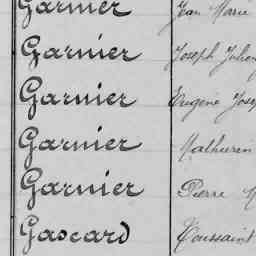 Garnier Jean Marie
Garnier Joseph Julien
Garnier Eugène Jose
Garnier Mathurin
Garnier Pierre M
Gascard Toussaint